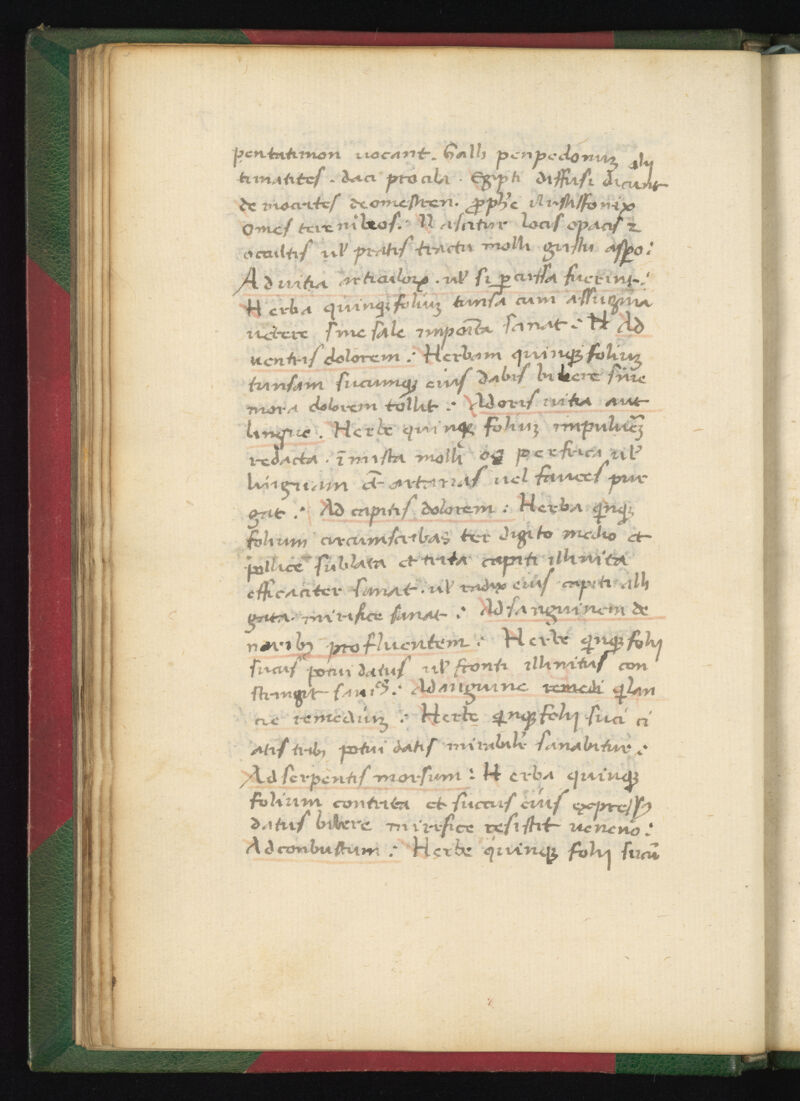 pentatimon uocant. Galli penpedonuꝫ alii
timatites. daci procila. Egipti diffusi dicunt
de mocrites deomestren. ꝓph̄e
omes tere nileos: Nascitur locis opacis ⁊
ocultis uľ pratis tractu molli gustu asꝑo:
Ad uitia articuloꝝ. uľ si ꝑcussa fuerint:
Herba quinqꝫ folium tunsa cum assugnia
uetere sine sale imposita sanat: Ad
uentris dolorem: Herbam quinqꝫ folium
tunsam sucumqꝫ eius dabis bibere sine
mora dolorem tollit: Ad oris uitia aut
lingue. Herbe quinqꝫ folium
redacta. īmista molli os perfrica uľ
linguam et artarias uel fauces pur
gat: Ad capitis dolorem: Herba qͥnqꝫ
folium circumscribas ter digito medio et
pollice sublata et trita capiti illinita
efficaciter sanat. uľ radix eius capiti alli
gata mirifice sanat: Ad sanguinem de
naribꝫ profluentem: Herbe qͥnqꝫ folii
sucus potui datus uľ fronti illinitus con
stringit Ad anguine remedi qͥ lan
cie remediuꝫ: Herbe qͥnqꝫ folii suci ci
atis tribꝫ potui datis mirabilr̄ sanabitur:
Ad serpentis morsum: Herba quinqꝫ
folium contrita et succus eius
datus bibere mirifice resistit ueneno:
Ad conbustum: Herbe quinqꝫ folii sucū